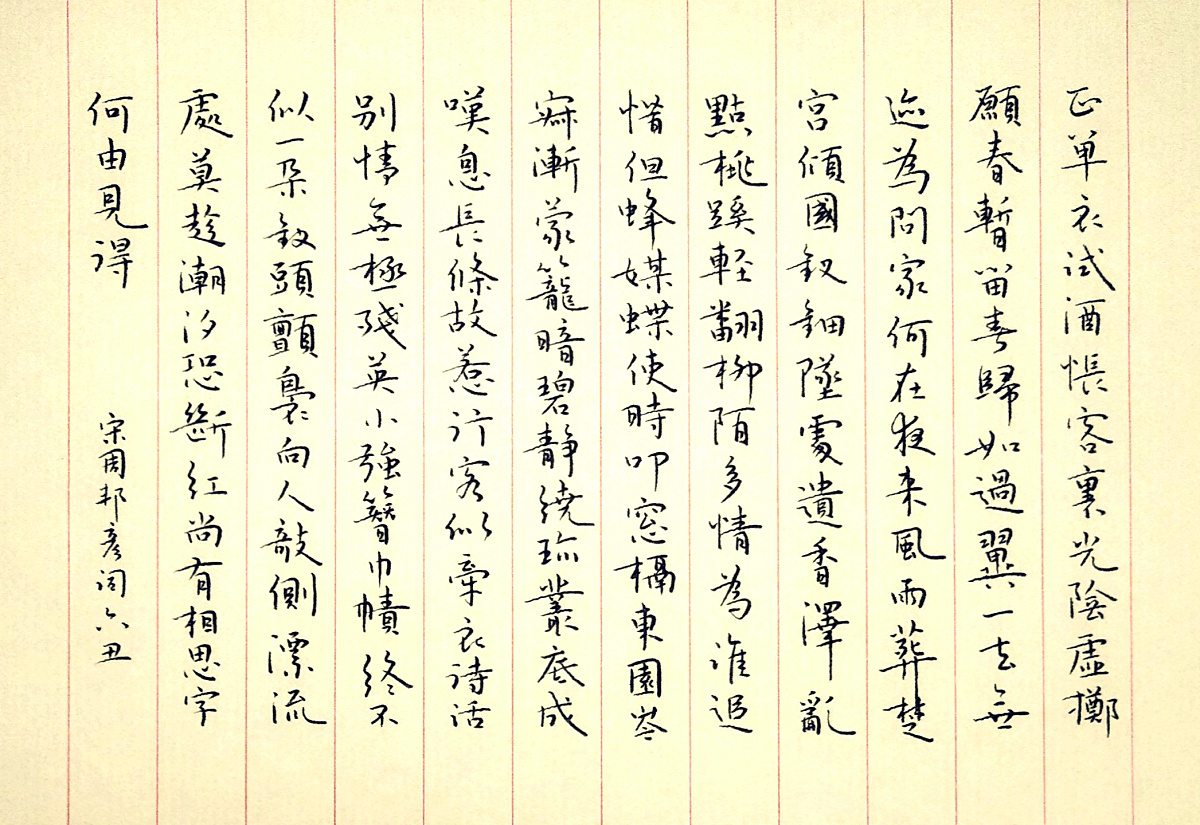 正单衣试酒悵客裏光陰虛擲
願春暫留春歸如過翼一去無
迹為問家何在夜来風雨葬楚
宮傾國釵鈿墜處遺香澤亂
點桃蹊輕翻柳陌多情為誰追
惜但蜂媒蝶使時叩窓槅東園岑
寂漸蒙籠暗碧静繞珎叢底成
嘆息長條故惹行客似牽衣待話
别情無極殘英小強簪巾幘終不
似一朵釵頭顫裊向人攲側漂流
處莫趁潮汐恐斷红尚有相思字
何由見得
宋周邦彦词六丑